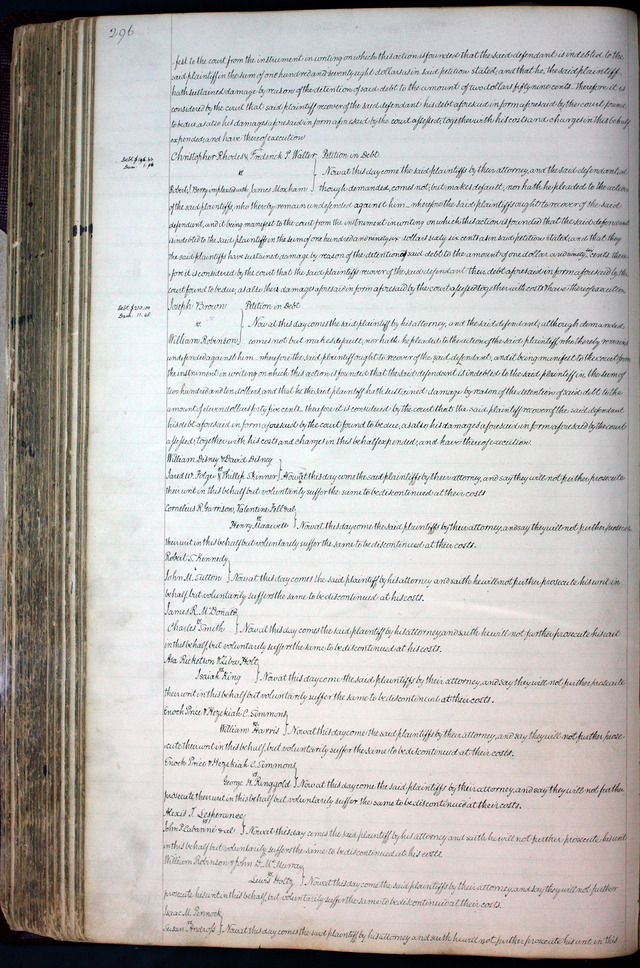 296
fest to the court from the instrument in writing on which this action is founded that the said defendant is indebted to the
said plaintiff in the sum of one hundred and seventy eight dollars as in said petition stated, and that he, the said plaintiff,
hath sustained damage by reason of the detention of said debt to the amount of two dollars fifty nine cents. Therefore it is
considered by the court that said plaintiff recover of the said defendant his debt aforesaid in form aforesaid by the court found
to be due, as also his damages aforesaid in form aforesaid by the court assessed, together with his costs and charges in this behalf
expended, and have thereof execution
Christopher Rhodes & Frederick P. Walter Petition in Debt.
Debt $196.66
Dam. 1.90
vs
Now at this day come the said plaintiffs by their attorney, and the said defendant al
Robert J. Berry impleaded with James Moxham though demanded, comes not; but makes default, nor hath he pleaded to the action
of the said plaintiffs, who thereby remain undefended against him. Wherefore the said plaintiffs ought to recover of the said
defendant, and it being manifest to the court from the instrument in writing on which this action is founded that the said defendant
is indebted to the said plaintiffs in the sum of one hundred and ninety six dollars sixty six cents as in said petition stated, and that they
the said plaintiffs have sustained damage by reason of the detention of said debt to the amount of one dollar and ninety cents. There
fore it is considered by the court that the said plaintiffs recover of the said defendant their debt aforesaid in form aforesaid by the
court found to be due, as also their damages aforesaid in form aforesaid by the court assessed together with costs & have thereof execution.
Joseph Brown Petition in Debt
Debt $210.00
Dam. 11.45
vs.
Now at this day comes the said plaintiff by his attorney, and the said defendant, although demanded,
William Robinson comes not but makes default, nor hath he pleaded to the action of the said plaintiff, who thereby remains
undefended against him. Wherefore the said plaintiff ought to recover of the said defendant, and it being manifest to the court from
the instrument in writing on which this action is founded that the said defendant is indebted to the said plaintiff in the sum of
two hundred and ten dollars, and that he the said plaintiff hath sustained damage by reason of the detention of said debt to the
amount of eleven dollars forty five cents. Therefore it is considered by the court that the said plaintiff recover of the said defendant
his debt aforesaid in form aforesaid by the court found to be due, as also his damages aforesaid in form aforesaid by the court
assessed, together with his costs and charges in this behalf expended, and have thereof execution.
William Disney & David Disney
vs
Jared W. Folger & Phillip Skinner Now at this day come the said plaintiffs by their attorney, and say they will not further prosecute
their writ in this behalf but voluntarily suffer the same to be discontinued at their costs
Cornelius R. Garrison, Valentine Fell & al
vs
Henry Maxwell Now at this day come the said plaintiffs by their attorney, and say they will not further prosecute
their writ in this behalf but voluntarily suffer the same to be discontinued at their costs.
Robert S. Kennedy
vs
John M. Sutton Now at this day comes the said plaintiff by his attorney and saith he will not further prosecute his writ in
behalf but voluntarily suffers the same to be discontinued at his costs.
James R. McDonald
vs
Charles Smith Now at this day comes the said plaintiff by his attorney, and saith he will not further prosecute his suit
in this behalf, but voluntarily suffers the same to be discontinued at his costs.
Asa Ricketson & Holt,
vs
Isaiah King Now at this day come the said plaintiffs by their attorney, and say they will not further prosecute
their writ in this behalf, but voluntarily suffer the same to be discontinued at their costs.
Enoch Price & Hezekiah C. Simmons,
vs
William Harris Now at this day come the said plaintiffs by their attorney, and say they will not further prose-
cute their writ in this behalf, but voluntarily suffer the same to be discontinued at their costs.
Enoch Price & Hezekiah C. Simmons,
vs
George H. Ringgold Now at this day come the said plaintiffs by their attorney, and say they will not further
prosecute their writ in this behalf but voluntarily suffer the same to be discontinued at their costs.
Alexis J. Lesperance
vs
John P. Cabanné & al Now at this day comes the said plaintiff by his attorney and saith he will not further prosecute his writ
in this behalf but voluntarily suffers the same to be discontinued at his costs
William Robinson & John D. McMurray
vs
Lewis Holtz Now at this day come the said plaintiffs by their attorney and say they will not further
prosecute his writ in this behalf, but voluntarily suffer the same to be discontinued at their costs.
Isaac M. Pennock,
vs
Susan Andross Now at this day comes the said plaintiff by his attorney and saith he will not further prosecute his writ in this